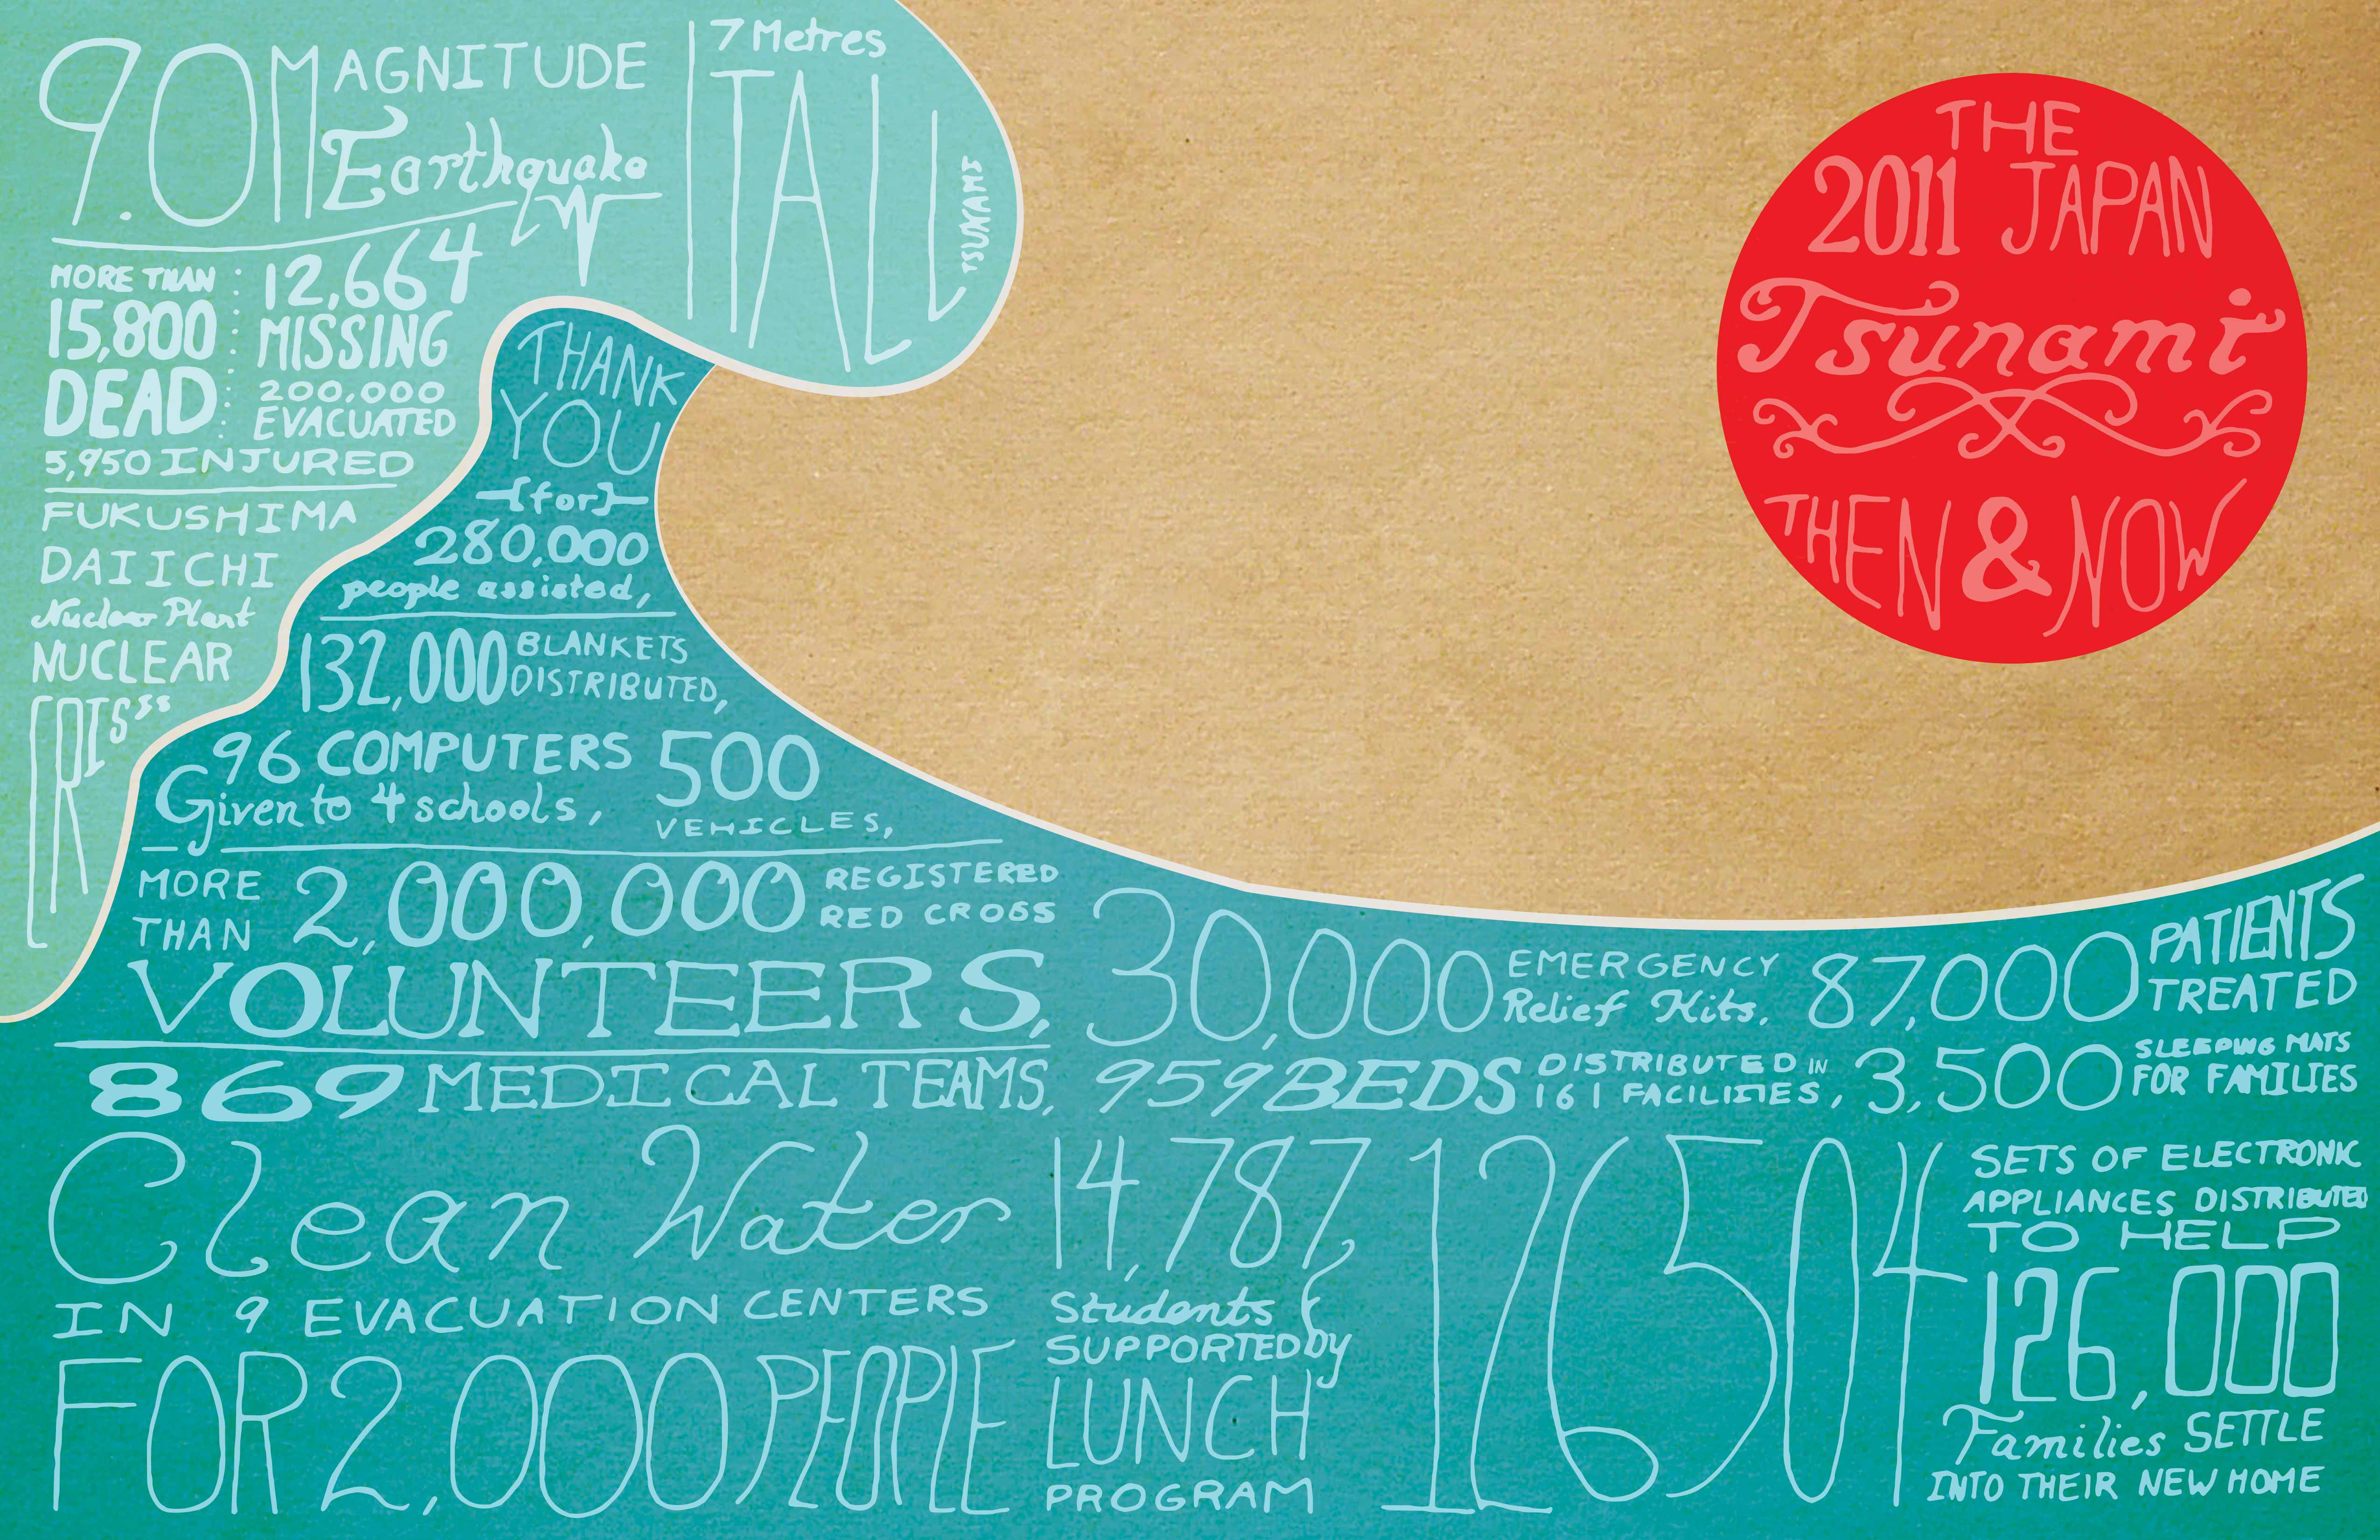 9.0 MAGNITUDE
Earthquake
7 Metres
TALL
TSUNAMI
MORE THAN
15,800
DEAD
12,664
MISSING
200,000
EVACUATED
5,950 INJURED
FUKUSHIMA
DAIICHI
Nuclear Plant
NUCLEAR
CRISIS
THE
2011 JAPAN
Tsunami
THEN & NOW
THANK
YOU
{for}
280,000
people assisted,
132,000 BLANKETS
DISTRIBUTED,
96 COMPUTERS
Given to 4 schools,
500
VEHICLES,
MORE
THAN
2,000,000
REGISTERED
RED CROSS
VOLUNTEERS,
869 MEDICAL TEAMS,
30,000 EMERGENCY
Relief Kits,
87,000 PATIENTS
TREATED
959 BEDS DISTRIBUTED IN
161 FACILITIES,
3,500 SLEEPING MATS
FOR FAMILIES
Clean Water
IN 9 EVACUATION CENTERS
FOR 2,000 PEOPLE
14,787
Students
SUPPORTED by
LUNCH
PROGRAM
126504
SETS OF ELECTRONIC
APPLIANCES DISTRIBUTED
TO HELP
126,000
Families SETTLE
INTO THEIR NEW HOME